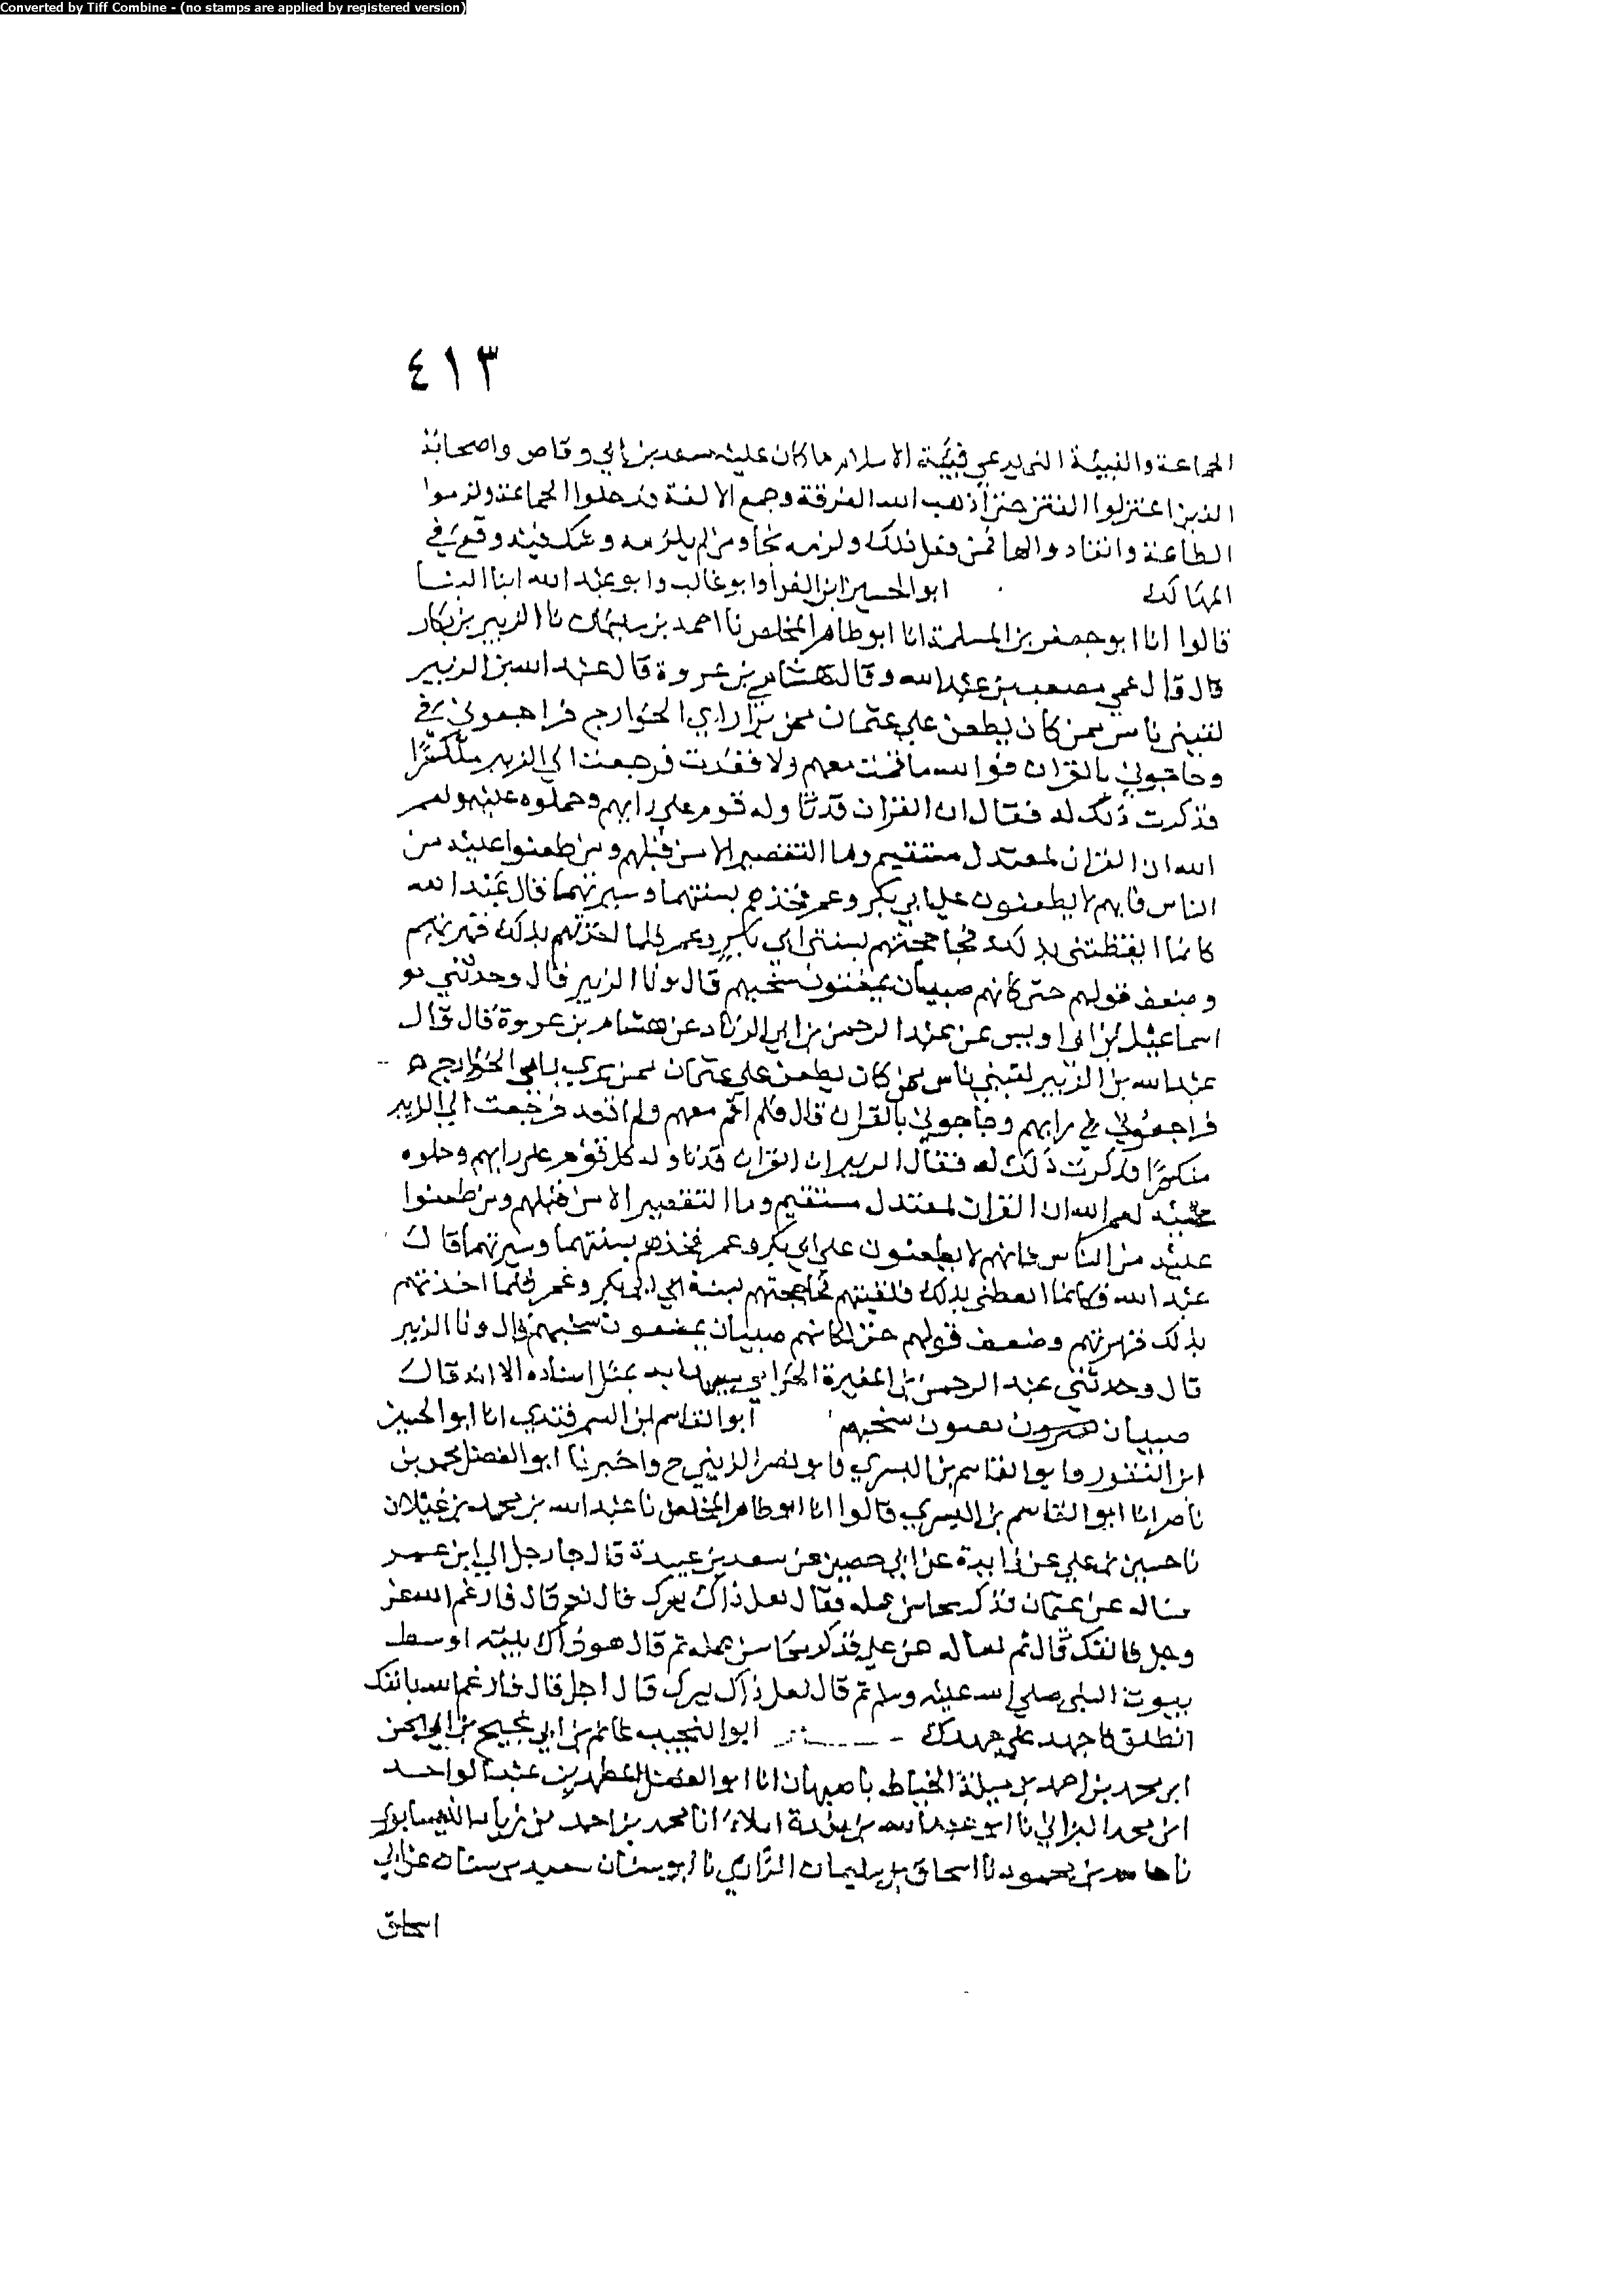 Converted by Tiff Combine - (no stamps are applied by registered version)
٤١٣
الجماعة والفيئة التي يدعي فيئة الاسلام ما كان عليه سعد بن ابي وقاص واصحابه
الذين اعتزلوا الفتن حتى اذهب الله الفرقة وجمع الالفة فدخلوا الجماعة ولزموا
الطاعة وانقادوا لها فمن فعل ذلك ولزمه نجا ومن لم يلزمه وشك فيه وقع في
المهالك ابو الحسين ابن الفرا وابو غالب وابو عبد الله ابنا البنا
قالوا انا ابو جعفر بن المسلمة انا ابو طاهر المخلص نا احمد بن سليمان نا الزبير بن بكار
قال قال عمي مصعب بن عبد الله وقال هشام بن عروة قال عبد الله بن الزبير
لقيني ناس ممن كان يطعن على عثمان ممن يرا راي الخوارج فراجعوني في
وحاجوني بالقران فوالله ما قمت معهم ولا قعدت فرجعت الى الزبير منكسرًا
فذكرت ذلك له فقال ان القران قد تاوله قوم على رايهم وحملوه عليه ولعمر
الله ان القران لمعتدل مستقيم وما التقصير الا من قبلهم ومن طعنوا عليه من
الناس فانهم لا يطعنون على ابي بكر وعمر فخذهم بسنتهما وسيرتهما قال عبد الله
كانما ايقظني بذلك فحاججتهم بسنتي ابي بكر وعمر فلما اخذتهم بذلك قهرتهم
وضعف قولهم حتى كانهم صبيان يمغثون سخبهم قال ونا الزبير قال وحدثني
اسماعيل بن ابي اويس عن عبد الرحمن بن ابي الزناد عن هشام بن عروة قال قال
عبد الله بن الزبير لقيني ناس ممن كان يطعن على عثمان ممن يرى راي الخوارج
فراجعوني في رايهم وحاجوني بالقران قال فلم اقم معهم ولم اقعد فرجعت الى الزبير
منكسرًا فذكرت ذلك له فقال الزبير ان القران قد تاوله كل قوم على رايهم وحملوه
عليه لعمر الله ان القران لمعتدل مستقيم وما التقصير الا من قبلهم ومن طعنوا
عليه من الناس فانهم لا يطعنون على ابي بكر وعمر فخذهم بسنتهما وسيرتهما قال
عبد الله فكانما ايقظني بذلك فلقيتهم فحاججتهم بسنة ابي بكر وعمر فلما اخذتهم
بذلك قهرتهم وضعف قولهم حتى كانهم صبيان يمضغون سخبهم قال ونا الزبير
قال وحدثني عبد الرحمن بن المغيرة الحزامي بمثل اسناده الا انه قال
صبيان سخبهم ابو القاسم ابن السمرقندي انا ابو الحسين
ابن النقور وابو القاسم بن البسري وابو نصر الزينبي ح واخبرنا ابو الفضل محمد بن
ناصر انا ابو القاسم بن البسري قالوا انا ابو طاهر المخلص نا عبد الله بن محمد بن غيلان
نا حسين بن علي عن زايدة عن ابي حصين عن سعد بن عبيدة قال جا رجل الى ابن عمر
فساله عن عثمان فذكر محاسن عمله فقال لعل ذاك يسوءك قال نعم قال فارغم الله عز
وجل فانفك قال ثم ساله عن علي فذكر محاسن عمله ثم قال هو ذاك بيته اوسط
بيوت النبي صلى الله عليه وسلم ثم قال لعل ذاك يسوءك قال اجل قال فارغم الله بانفك
انطلق فاجهد علي جهدك ابو النجيب
ابن محمد بن احمد بن الخياط باصبهان انا ابو الفضل المطهر بن عبد الواحد
ابن محمد البزاني نا ابو عبد الله بن مندة املاءً انا محمد بن احمد بن النيسابوري
نا حامد بن محمود نا اسحاق بن سليمان الرازي نا ابو سنان سعيد بن سنان عن ابي
اسحاق